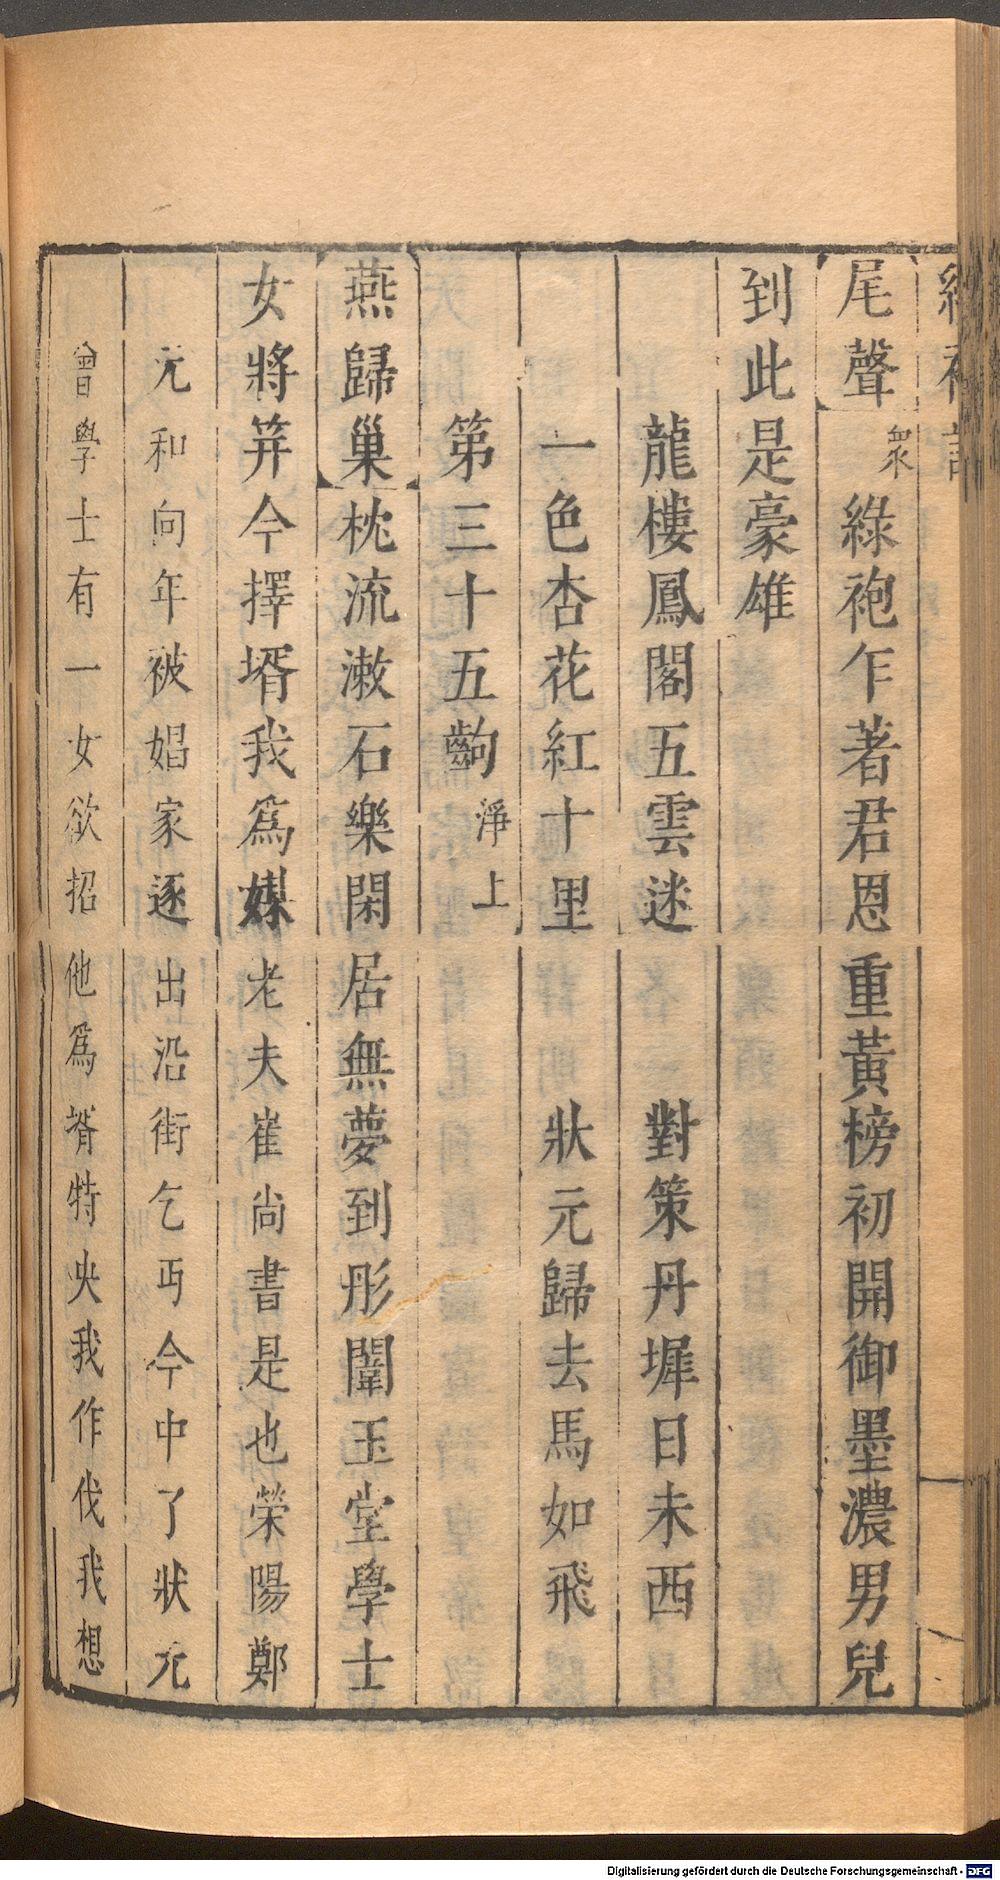 尾聲 衆 綠袍乍著君恩重黃榜初開御墨濃男兒
到此是豪雄
龍樓鳳閣五雲迷 對策丹墀日未西
一色杏花紅十里 狀元歸去馬如飛
第三十五齣 淨上
燕歸巢 枕流漱石樂閑居無夢到彤闈玉堂學士
女將笄今擇壻我爲媒老夫崔尚書是也榮陽鄭
元和向年被娼家逐出沿街乞丐今中了狀元
曾學士有一女欲招他爲壻特央我作伐我想
Digitalisierung gefördert durch die Deutsche Forschungsgemeinschaft - DFG